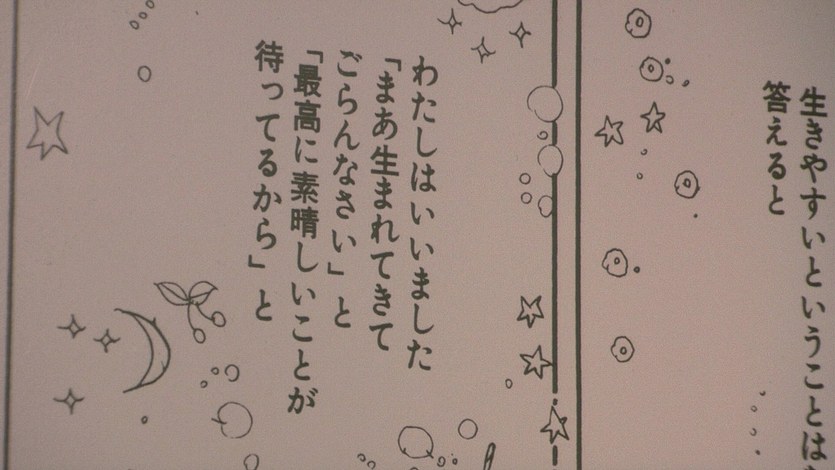 生きやすいということは
答えると
わたしはいいました
「まあ生まれてきて
ごらんなさい」と
「最高に素晴しいことが
待ってるから」と